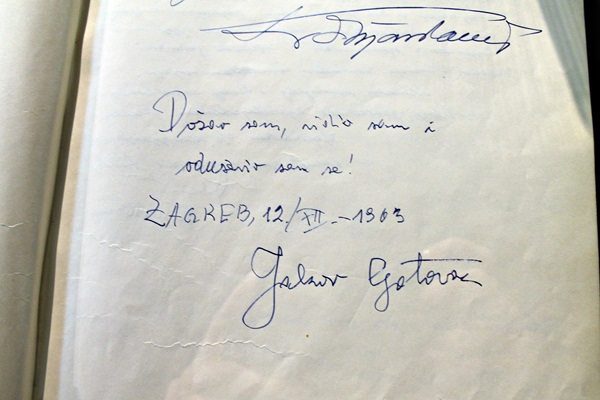 Došao sam, vidio sam i
oduševio sam se!
ZAGREB, 12./XII.-1963
Jakov Gotovac